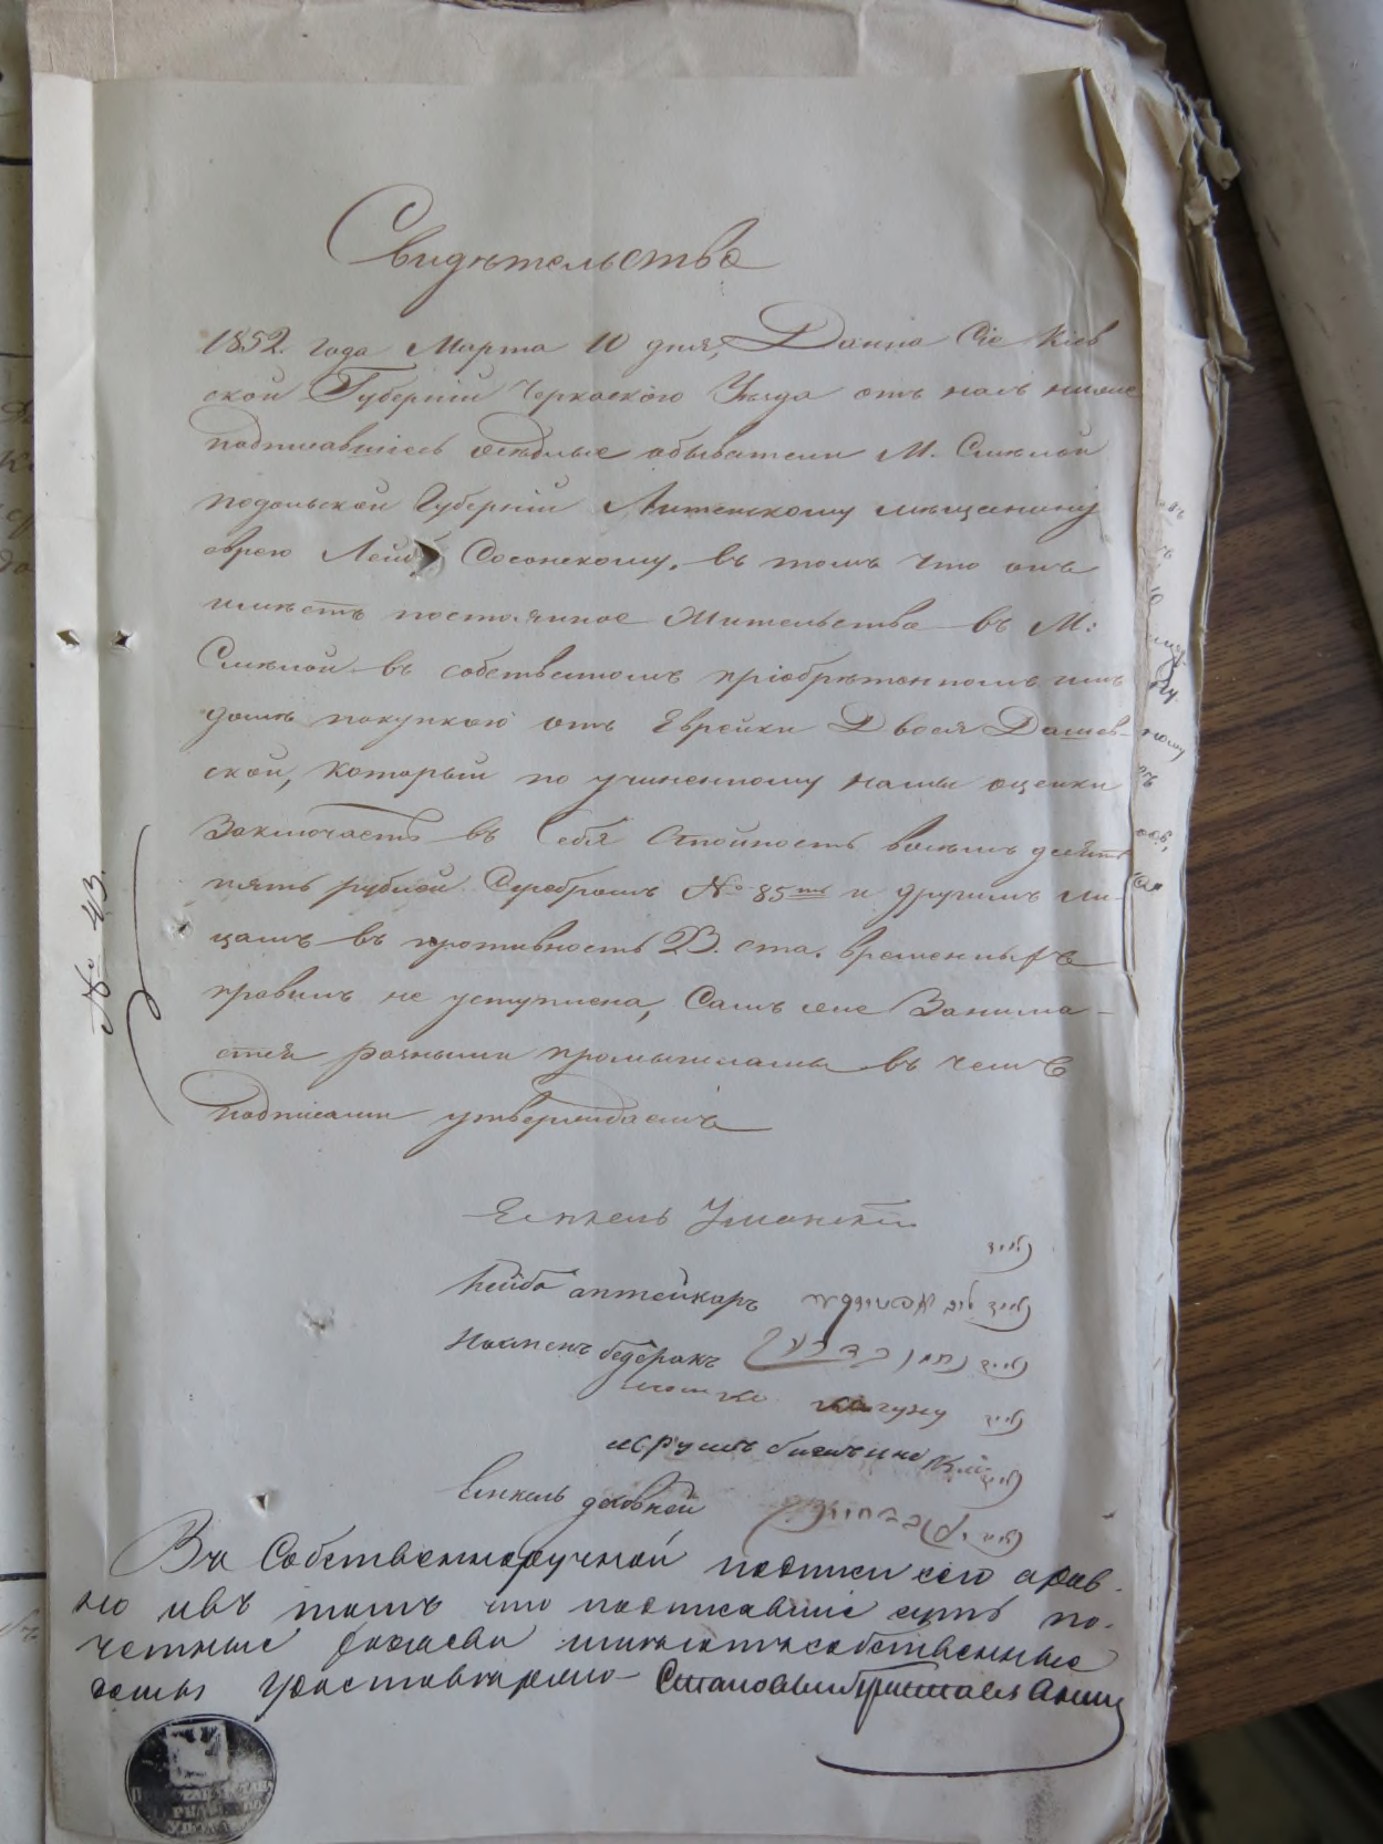 Свидѣтельство
1852. года Марта 10 дня, Данно Сіе Кіев
ской Губерніи Черкаскаго Уѣзда отъ насъ ниже
подписавшіесь осѣдлые обыватели М. Смѣлой
подольской Губерніи Литенскому мѣщанину
еврею Лейбѣ Сосонскому. въ томъ что онъ
имѣетъ постоянное Жительство въ М:
Смѣлой въ собственномъ пріобрѣтенномъ имъ
домѣ покупкою отъ Еврейки Двоси Дашев-
ской, который по учиненному нами оценки
Заключаетъ въ Себя Стоимость восемъ десятъ
пять рублей Серебромъ № 85 и другимъ ли-
цамъ въ противность В. ста. временныхъ
правилъ не уступлена, Самъ же Занима-
ется разными промыслами въ чемъ
подписами утверждаемъ
Еснкель Уманскій
נאום
Лейба аптейкаръ נאום ליב
Нахменъ бедеракъ נאום נחמן
мошко נאום
סрулъ נאום
Еинкель נאום
Въ Собственноручной подписи сего а рав-
но ивъ томъ что подписавшіе суть по-
четные имѣютъ собственные
домы удостовѣряю Становый Приставъ
№ 43.